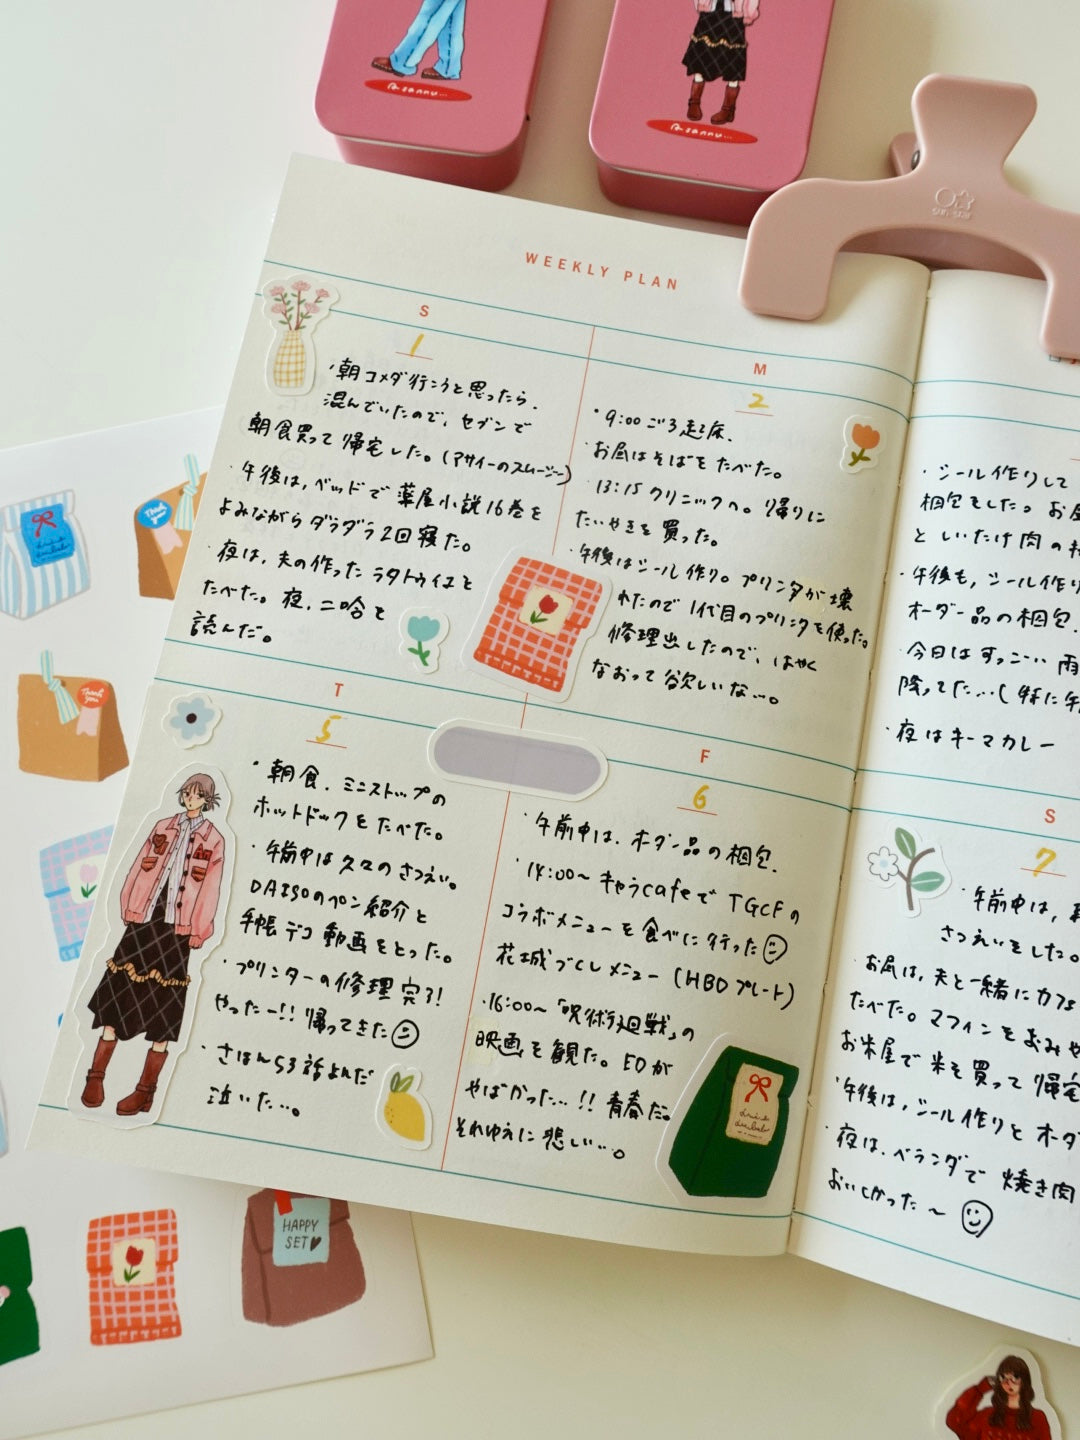 WEEKLY PLAN
S
1
・朝コメダ行こうと思ったら、
混んでいたので、セブンで
朝食買って帰宅した。(アサイーのスムージー)
・午後は、ベッドで薬屋小説16巻を
よみながらダラダラ2回寝た。
・夜は、夫の作ったラタトゥイユを
たべた。夜、二哈を
読んだ。
M
2
・9:00ごろ起床、
・お昼はそばをたべた。
・13:15クリニックへ。帰りに
たいやきを買った。
・午後はシール作り。プリンタが壊
れたので1代目のプリンタを使った。
修理出したので、はやく
なおって欲しいな…。
・シール作りして
梱包をした。お昼
としいたけ肉の
・午後も、シール作り
オーダー品の梱包。
・今日はすっごい雨
降ってた…(特に午
・夜はキーマカレー
T
5
・朝食、ミニストップの
ホットドックをたべた。
・午前中は久々のさつえい。
DAISOのペン紹介と
手帳デコ動画をとった。
・プリンターの修理完了!
やったー!! 帰ってきた
・さはん53話よんだ
泣いた…。
F
6
・午前中は、オーダー品の梱包。
・14:00〜キャラcafeでTGCFの
コラボメニューを食べに行った
花城づくしメニュー(HBDプレート)
・16:00〜「呪術廻戦」の
映画を観た。EDが
やばかった…!! 青春だ。
それゆえに悲しい…。
S
7
・午前中は、
さつえいをした。
・お昼は、夫と一緒にカフェ
たべた。マフィンをおみや
お米屋で米を買って帰宅
・午後は、シール作りとオーダ
・夜は、ベランダで焼き肉
おいしかった〜
sun-star
Thank you
Thank you
HAPPY
SET♥